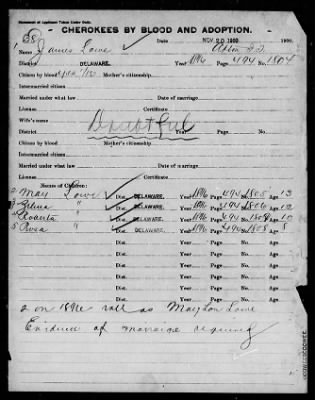 Statement of Applicant Taken Under Oath.
CHEROKEES BY BLOOD AND ADOPTION.
Date NOV 20 1900 1900.
Name James Lowe Afton I.T.
District DELAWARE. Year 1896 Page 494 No. 1804
Citizen by blood Mother's citizenship.
Intermarried citizen
Married under what law Date of marriage.
License Certificate
Wife's name
Doubtful
District Year Page No.
Citizen by blood Mother's citizenship.
Intermarried citizen
Married under what law Date of marriage.
License Certificate
Names of Children:
2 May Lowe Dist. DELAWARE. Year 1896 Page 494 No. 1805 Age 13
3 " Dist. DELAWARE. Year 1896 Page 494 No. 1806 Age 12
4 " Dist. DELAWARE. Year 1896 Page 494 No. Age 10
5 Rosa " Dist. DELAWARE. Year 1896 Page 494 No. Age 8
Dist. Year Page No. Age
Dist. Year Page No. Age
Dist. Year Page No. Age
Dist. Year Page No. Age
2 on 1896 roll as Lowe
Evidence of marriage required